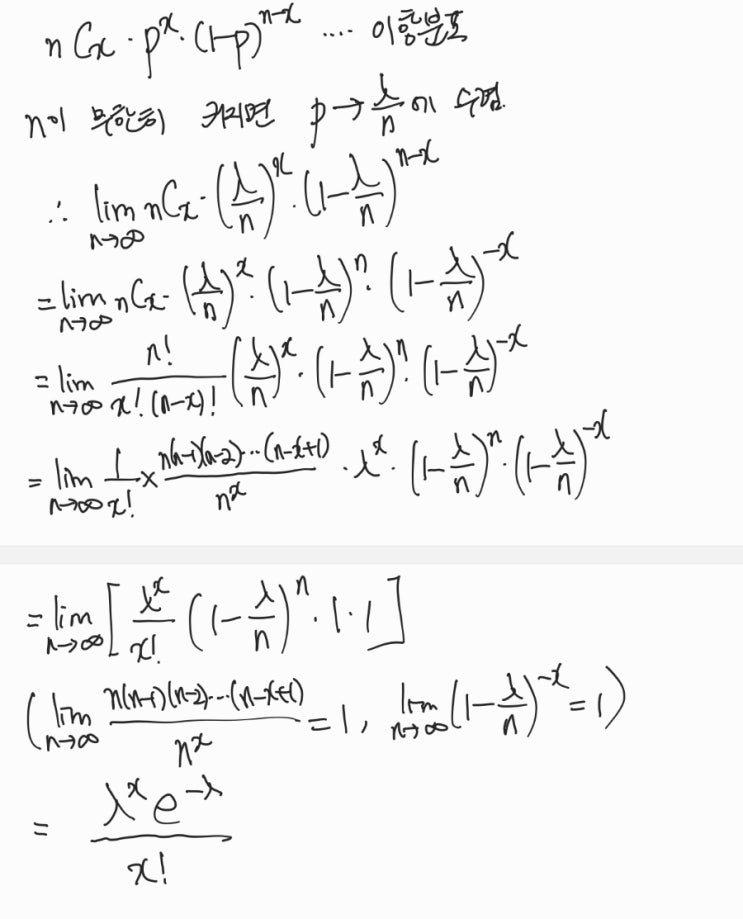 nCx · p^x · (1-p)^{n-x} .... 이항분포
n이 무한히 커지면 p → λ/n 에 수렴
∴ lim_{n→∞} nCx · (λ/n)^x · (1-λ/n)^{n-x}
= lim_{n→∞} nCx · (λ/n)^x · (1-λ/n)^n · (1-λ/n)^{-x}
= lim_{n→∞} n!/(x!(n-x)!) (λ/n)^x · (1-λ/n)^n · (1-λ/n)^{-x}
= lim_{n→∞} 1/x! × n(n-1)(n-2)···(n-x+1)/n^x · λ^x · (1-λ/n)^n · (1-λ/n)^{-x}
= lim_{n→∞} [ λ^x/x! (1-λ/n)^n · 1 · 1 ]
( lim_{n→∞} n(n-1)(n-2)···(n-x+1)/n^x = 1, lim_{n→∞} (1-λ/n)^{-x} = 1 )
= λ^x e^{-λ}/x!